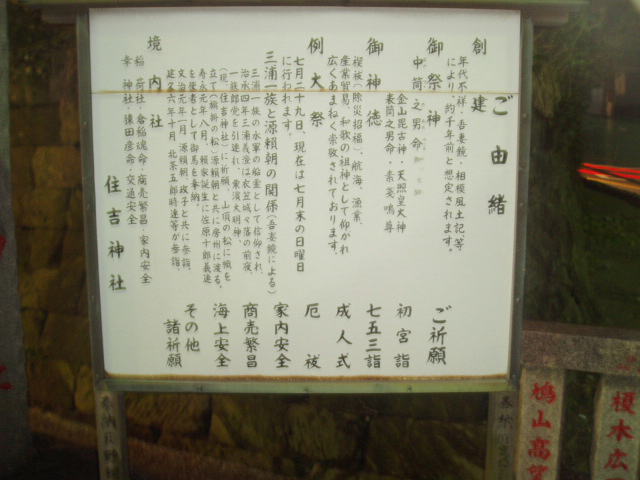 ご由緒
創建
年代不祥・吾妻鏡・相模風土記等
により、約千年前と想定されます。
御祭神
中筒之男命
金山毘古神・天照皇大神
表筒之男命・素箋鳴尊
御神徳
禊祓(除災招福)、航海、漁業、
産業貿易、和歌の祖神として仰がれ
広くあまねく崇敬されております。
例大祭
七月二十九日、現在は七月末の日曜日
に行われます。
三浦一族と源頼朝の関係(吾妻鏡による)
三浦一族の水軍の船霊として信仰され、
治承四年三浦義澄は衣笠城々落の前夜、
一族郎党を引連れ、栗濱大明神、
(現住吉神社)に祈願、山頂の松に幟を
立て(旗掛の松)源頼朝と共に房州に渡る。
寿永元年八月、頼家誕生に佐原十郎義連
を使者として御馬を奉納。
文治元年一月、源頼朝、政子と共に参詣。
建久六年十月、北条五郎時連等が参詣。
境内社
稲荷社・倉稲魂命・商売繁昌・家内安全
幸神社・猿田彦命・交通安全
住吉神社
ご祈願
初宮詣
七五三詣
成人式
厄祓
家内安全
商売繁昌
海上安全
その他
諸祈願
奉納
奉納
鳩山高
榎木広